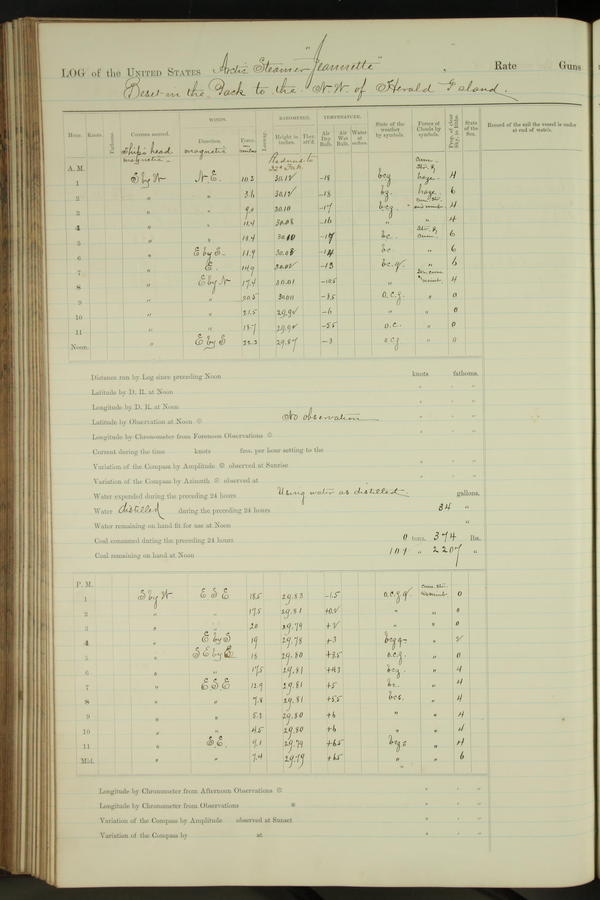 LOG of the UNITED STATES Arctic Steamer "Jeannette" Rate Guns
Beset in the Pack to the N.W. of Herald Island.
WINDS. BAROMETER. TEMPERATURE.
Hour. Knots. Fathoms. Courses steered. Direction. Force. Leeway. Height in inches. Ther. att'd. Air Dry Bulb. Air Wet Bulb. Water at surface. State of the weather by symbols. Forms of Clouds by symbols. Prop. of clear Sky, in 10ths. State of the Sea. Record of the sail the vessel is under at end of watch.
Ship's head magnetic magnetic Reduced to 32° Fah.
A. M.
1 S by W N.E. 10.2 30.12 -18 bcg haze 4
2 " " 3.6 30.12 -18 bz. haze 6
3 " " 9.0 30.10 -17 bcz 4
4 " " 11.4 30.08 -16 " " 4
5 " " 12.4 30.10 -17 bc. 6
6 " E by S. 11.9 30.08 -14 bc " 6
7 " E. 14.9 30.02 -13 bc.q. " 6
8 " E by N 17.4 30.01 -10.5 " 4
9 " " 20.5 30.01 -8.5 o.c.g. " 0
10 " " 21.5 29.92 -6 " " 0
11 " " 18.7 29.92 -5.5 o.c. " 0
Noon. " E by S 22.3 29.87 -3 o.c.g " 0
Distance run by Log since preceding Noon knots fathoms.
Latitude by D. R. at Noon ° ' "
Longitude by D. R. at Noon ° ' "
Latitude by Observation at Noon No observation ° ' "
Longitude by Chronometer from Forenoon Observations ° ' "
Current during the time knots fms. per hour setting to the
Variation of the Compass by Amplitude observed at Sunrise ° ' "
Variation of the Compass by Azimuth observed at ° ' "
Water expended during the preceding 24 hours Using water as distilled. gallons.
Water distilled during the preceding 24 hours 84 "
Water remaining on hand fit for use at Noon "
Coal consumed during the preceding 24 hours 0 tons. 374 lbs.
Coal remaining on hand at Noon 101 " 2207 "
P. M.
1 S by W E S E 18.5 29.83 -1.5 o.c.g.q. 0
2 " " 17.5 29.81 +0.2 " " 0
3 " " 20 29.79 +2 " " 0
4 " E by S 19 29.78 +3 bcgq " 2
5 " S E by E 18 29.80 +3.5 o.c.g. " 0
6 " " 17.5 29.81 +4.3 bcg. " 4
7 " E S E 12.9 29.81 +5 bc. " 4
8 " " 7.8 29.81 +5.5 bcs. " 4
9 " " 5.2 29.80 +6 " " 4
10 " " 4.5 29.80 +6 " " 4
11 " S E. 9.1 29.79 +6.5 bcgs " 4
Mid. " " 7.4 29.79 +6.5 " " 6
Longitude by Chronometer from Afternoon Observations ° ' "
Longitude by Chronometer from Observations ° ' "
Variation of the Compass by Amplitude observed at Sunset ° ' "
Variation of the Compass by at ° ' "